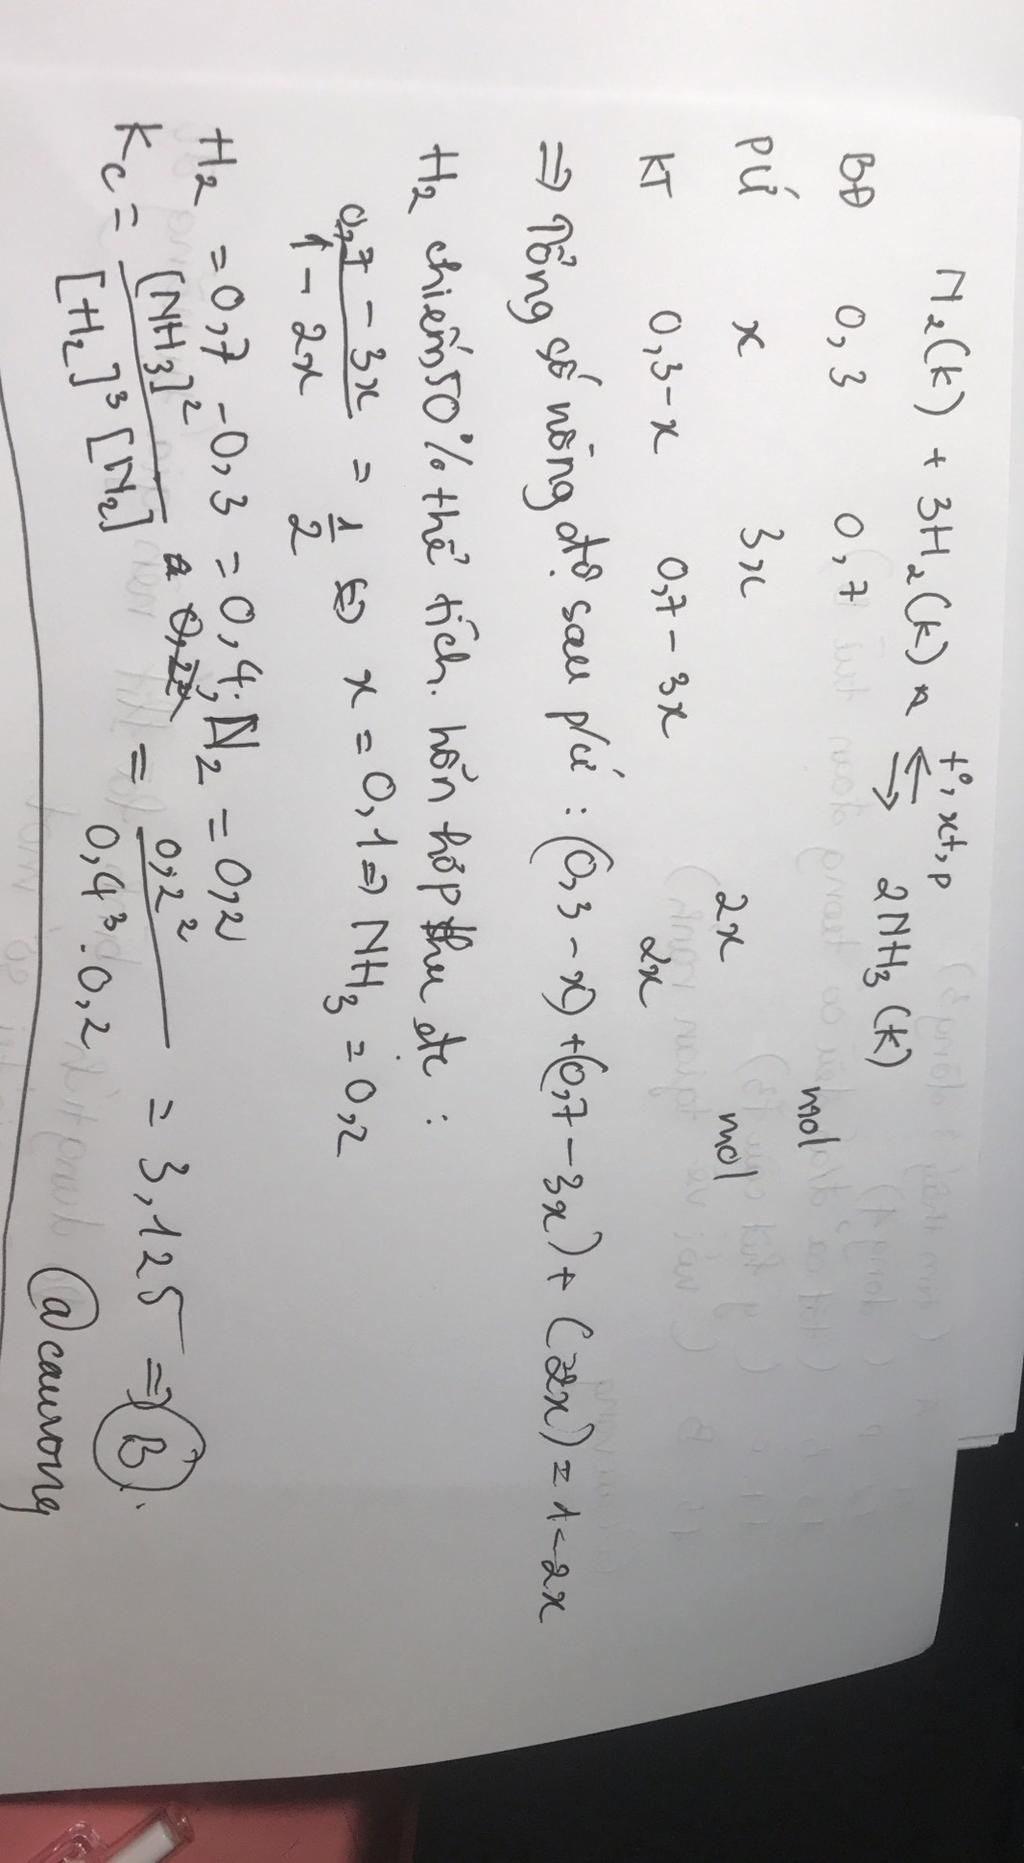 N₂(k) + 3H₂(k) ⇌ 2NH₃(k)
t°, xt, p
BĐ 0,3 0,7 mol
PỨ x 3x 2x mol
KT 0,3-x 0,7-3x 2x
=> Tổng số nồng độ sau pứ : (0,3-x) + (0,7-3x) + (2x) = 1-2x
H₂ chiếm 50% thể tích hỗn hợp thu đc :
(0,7 - 3x)/(1 - 2x) = 1/2 <=> x = 0,1 => NH₃ = 0,2
H₂ = 0,7 - 0,3 = 0,4. N₂ = 0,2
Kc = [NH₃]²/[H₂]³[N₂] = 0,2²/0,4³.0,2 = 3,125 => B.